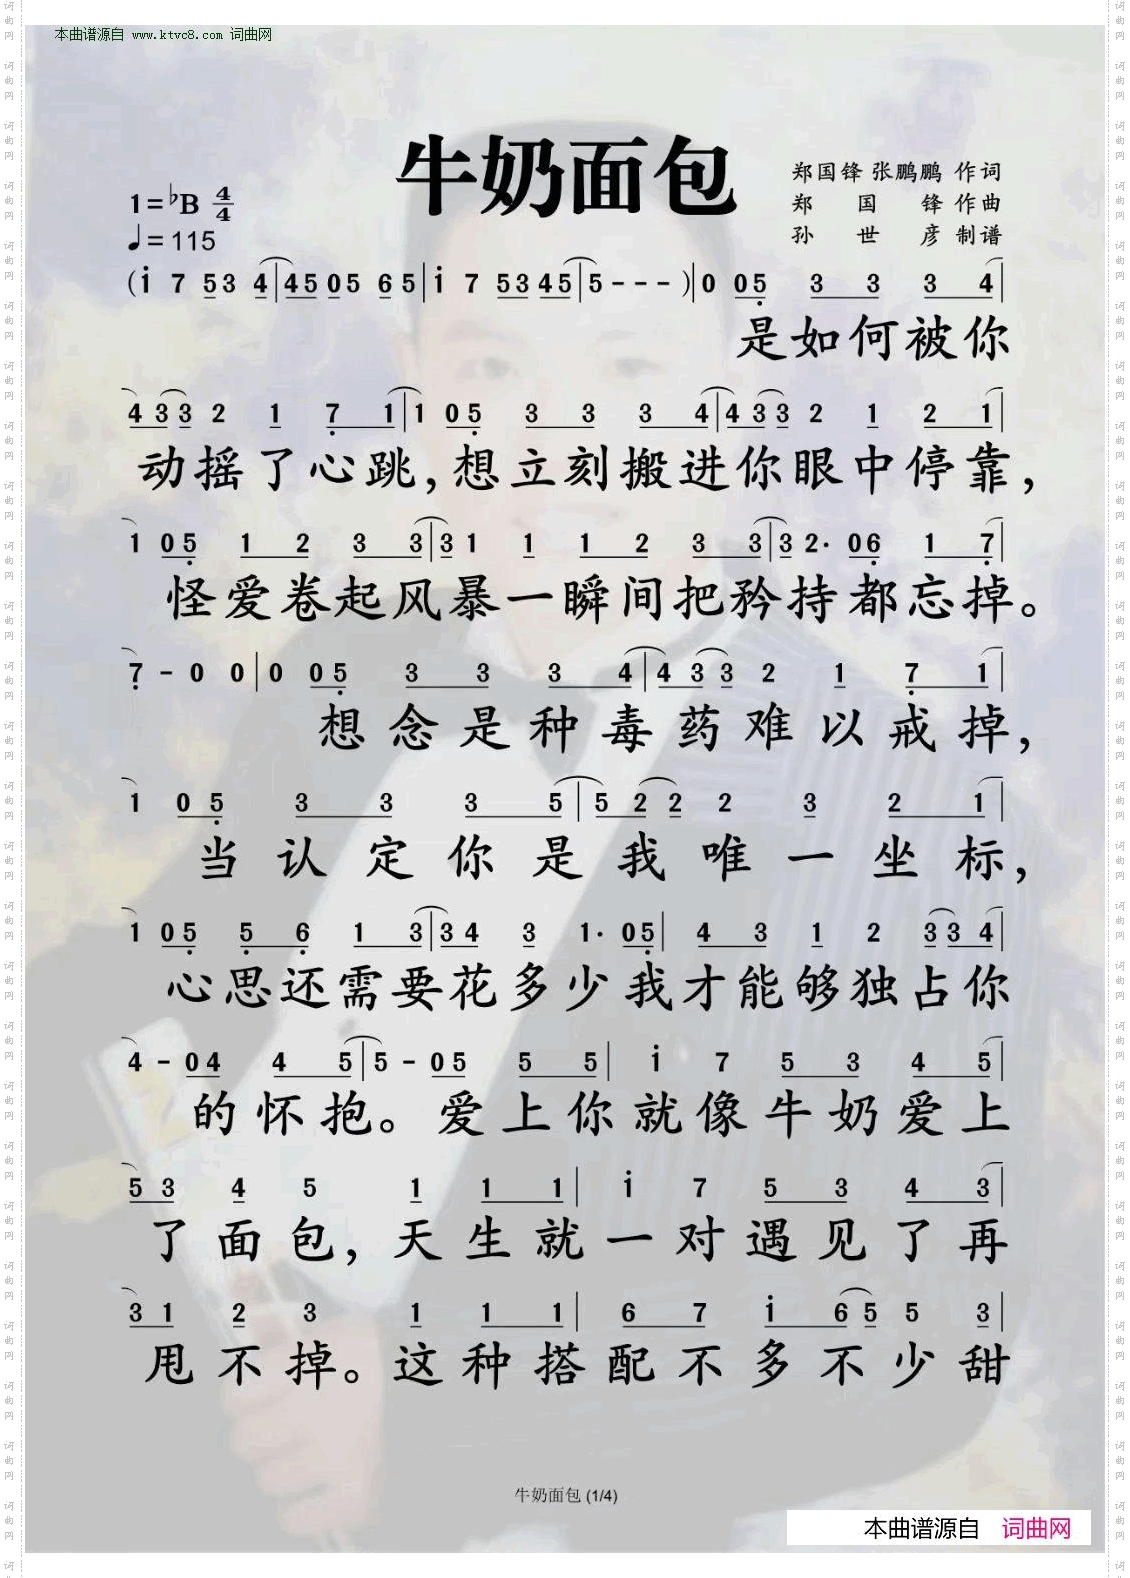 本曲谱源自 www.ktvc8.com 词曲网
牛奶面包
郑国锋 张鹏鹏 作词
郑国锋 作曲
孙世彦 制谱
1=♭B 4/4
♩=115
(i 7 53 4|45 05 6 5|i 7 53 45|5---)|0 05 3 3 3 4|
是如何被你
4 33 2 1 7 1|1 05 3 3 3 4|4 33 2 1 2 1|
动摇了心跳,想立刻搬进你眼中停靠,
1 05 1 2 3 3|3 1 1 1 2 3 3|3 2· 06 1 7|
怪爱卷起风暴一瞬间把矜持都忘掉。
7 - 0 0|0 05 3 3 3 4|4 33 2 1 7 1|
想念是种毒药难以戒掉,
1 05 3 3 3 5|5 22 2 3 2 1|
当认定你是我唯一坐标,
1 05 5 6 1 3|3 4 3 1· 05|4 3 1 2 3 3 4|
心思还需要花多少我才能够独占你
4 - 04 4 5|5 - 05 5 5|i 7 5 3 4 5|
的怀抱。爱上你就像牛奶爱上
5 3 4 5 1 1 1|i 7 5 3 4 3|
了面包,天生就一对遇见了再
3 1 2 3 1 1 1|6 7 i 6 5 5 3|
甩不掉。这种搭配不多不少甜
牛奶面包 (1/4)
本曲谱源自 词曲网